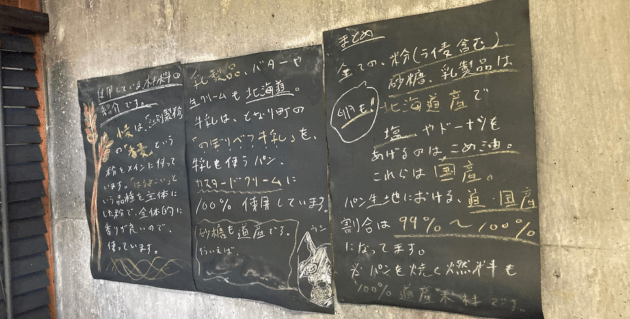 使用している材料の
紹介です。
粉は、江別製粉
の"香麦"という
粉をメインに使って
います。
いう品種を主体に
した粉で、全体的に
香りが良いので、
使っています。
乳製品、バターや
生クリームも北海道。
牛乳は、となり町の
"のぼりべつ牛乳"を、
牛乳を使うパン、
カスタードクリームに
100%使用しています。
砂糖も道産です。
ちいえば
まとめ
全ての、粉(ライ麦含む)
砂糖、乳製品は
北海道産で
塩やドーナツを
あげるのはこめ油。
これらは国産。
パン生地における、道・国産
割合は99%〜100%
になってます。
パンを焼く燃料も
100%道産木料です。